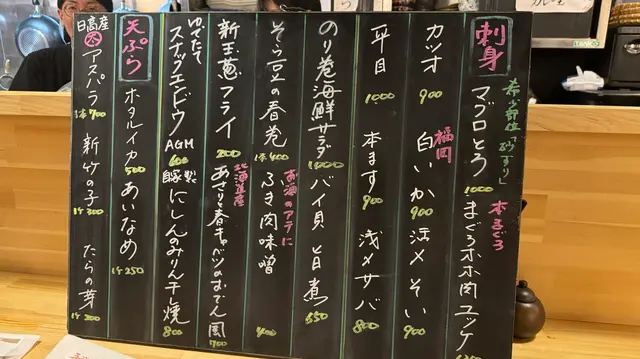 刺身
希少部位「砂ずり」
マグロとろ 1000
本まぐろ
まぐろホホ肉ユッケ
カツオ 900
福岡
白いか 900
活〆そい 900
平目 1000
本ます 900
浅〆サバ 800
のり巻海鮮サラダ 1000
バイ貝旨煮 550
そら豆の春巻 1本400
お酒のアテに
ふき肉味噌 400
新玉葱フライ 200
北海道産
あさりと春キャベツのおでん風 1700
ゆでたて
スナップエンドウ AGM 600
自家製
にしんのみりん干し焼 800
天ぷら
ホタルイカ 500
あいなめ 1ケ250
日高産
アスパラ 1本700
新竹の子 1ケ300
たらの芽 1ケ300